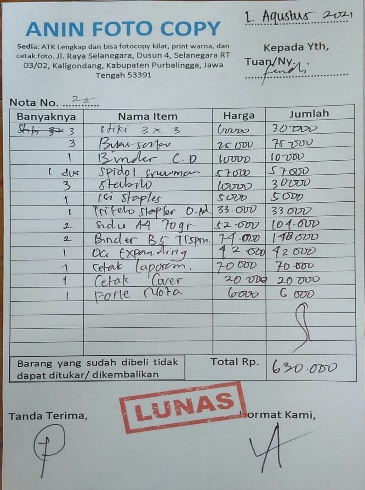 ANIN FOTO COPY
Sedia: ATK Lengkap dan bisa fotocopy kilat, print warna, dan
cetak foto. Jl. Raya Selanegara, Dusun 4, Selanegara RT
03/02, Kaligondang, Kabupaten Purbalingga, Jawa
Tengah 53391
1. Agustus 2021
Kepada Yth,
Tuan/Ny.
Nota No. 25
Banyaknya Nama Item Harga Jumlah
3 Stiki 3 x 3 10000 30 000
3 25 000 75 000
1 Binder C.D 10000 10.000
1 Spidol Snowman 57000 57000
3 Stabilo 10000 30000
1 Isi Staples 5000 5000
1 Stapler 33.000 33000
2 Sidu A4 70gr 52.000 104.000
2 Binder B5 74.000 148 000
1 Expanding 42 000 42 000
1 Cetak Laporan 70 000 70.000
1 Cetak Cover 20 000 20 000
1 Nota 6000 6 000
Barang yang sudah dibeli tidak
dapat ditukar/ dikembalikan
Total Rp. 630.000
LUNAS
Tanda Terima, Hormat Kami,